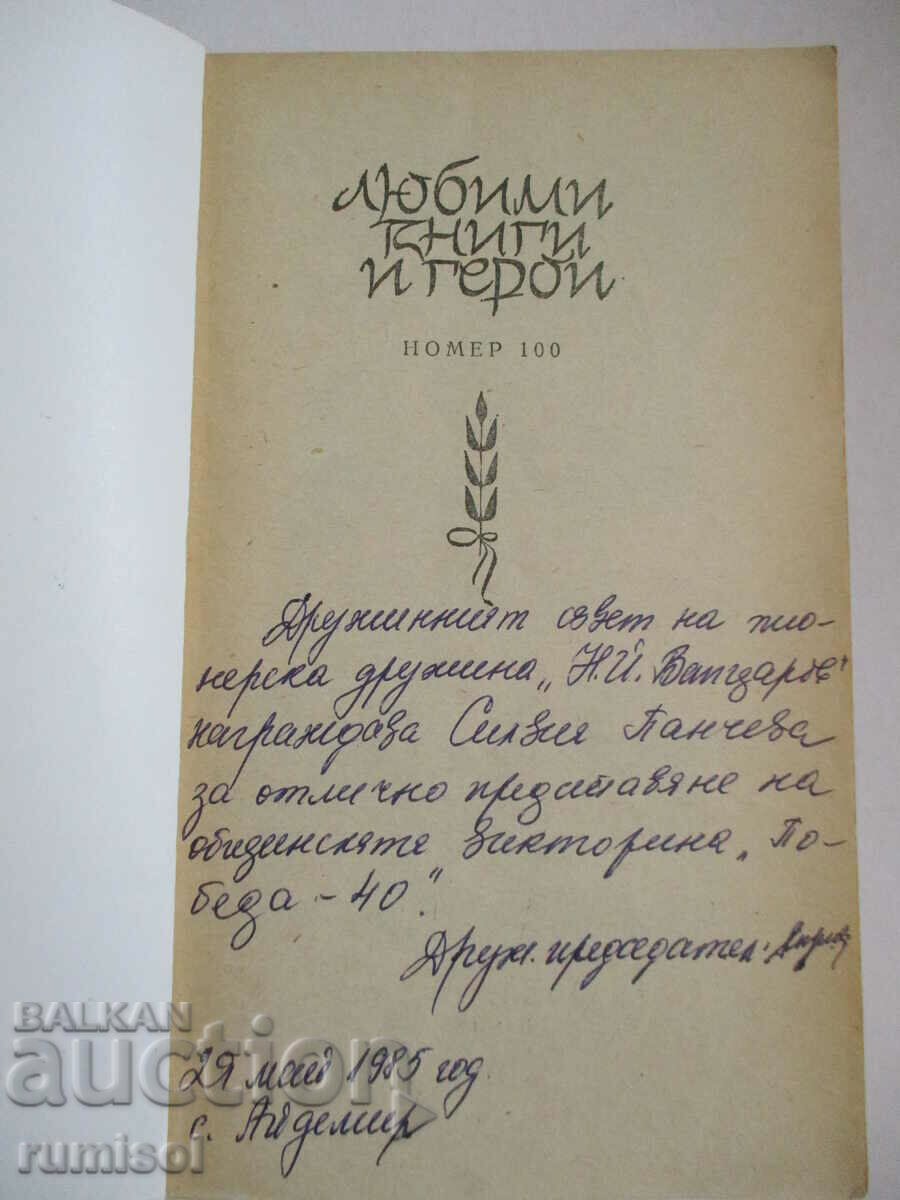 ЛЮБИМИ
КНИГИ
И ГЕРОИ
НОМЕР 100
Дружинният съвет на пио-
нерска дружина „Н.Й. Вапцаров"
награждава Силвия Панчева
за отлично представяне на
общинската викторина „По-
беда - 40".
Друж. председател:
29 май 1985 год.
с. Айдемир
BALKAN
auction
rumisol